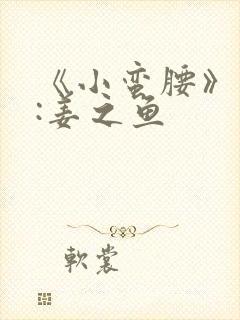 《小蛮腰》
:姜之鱼
軟裳